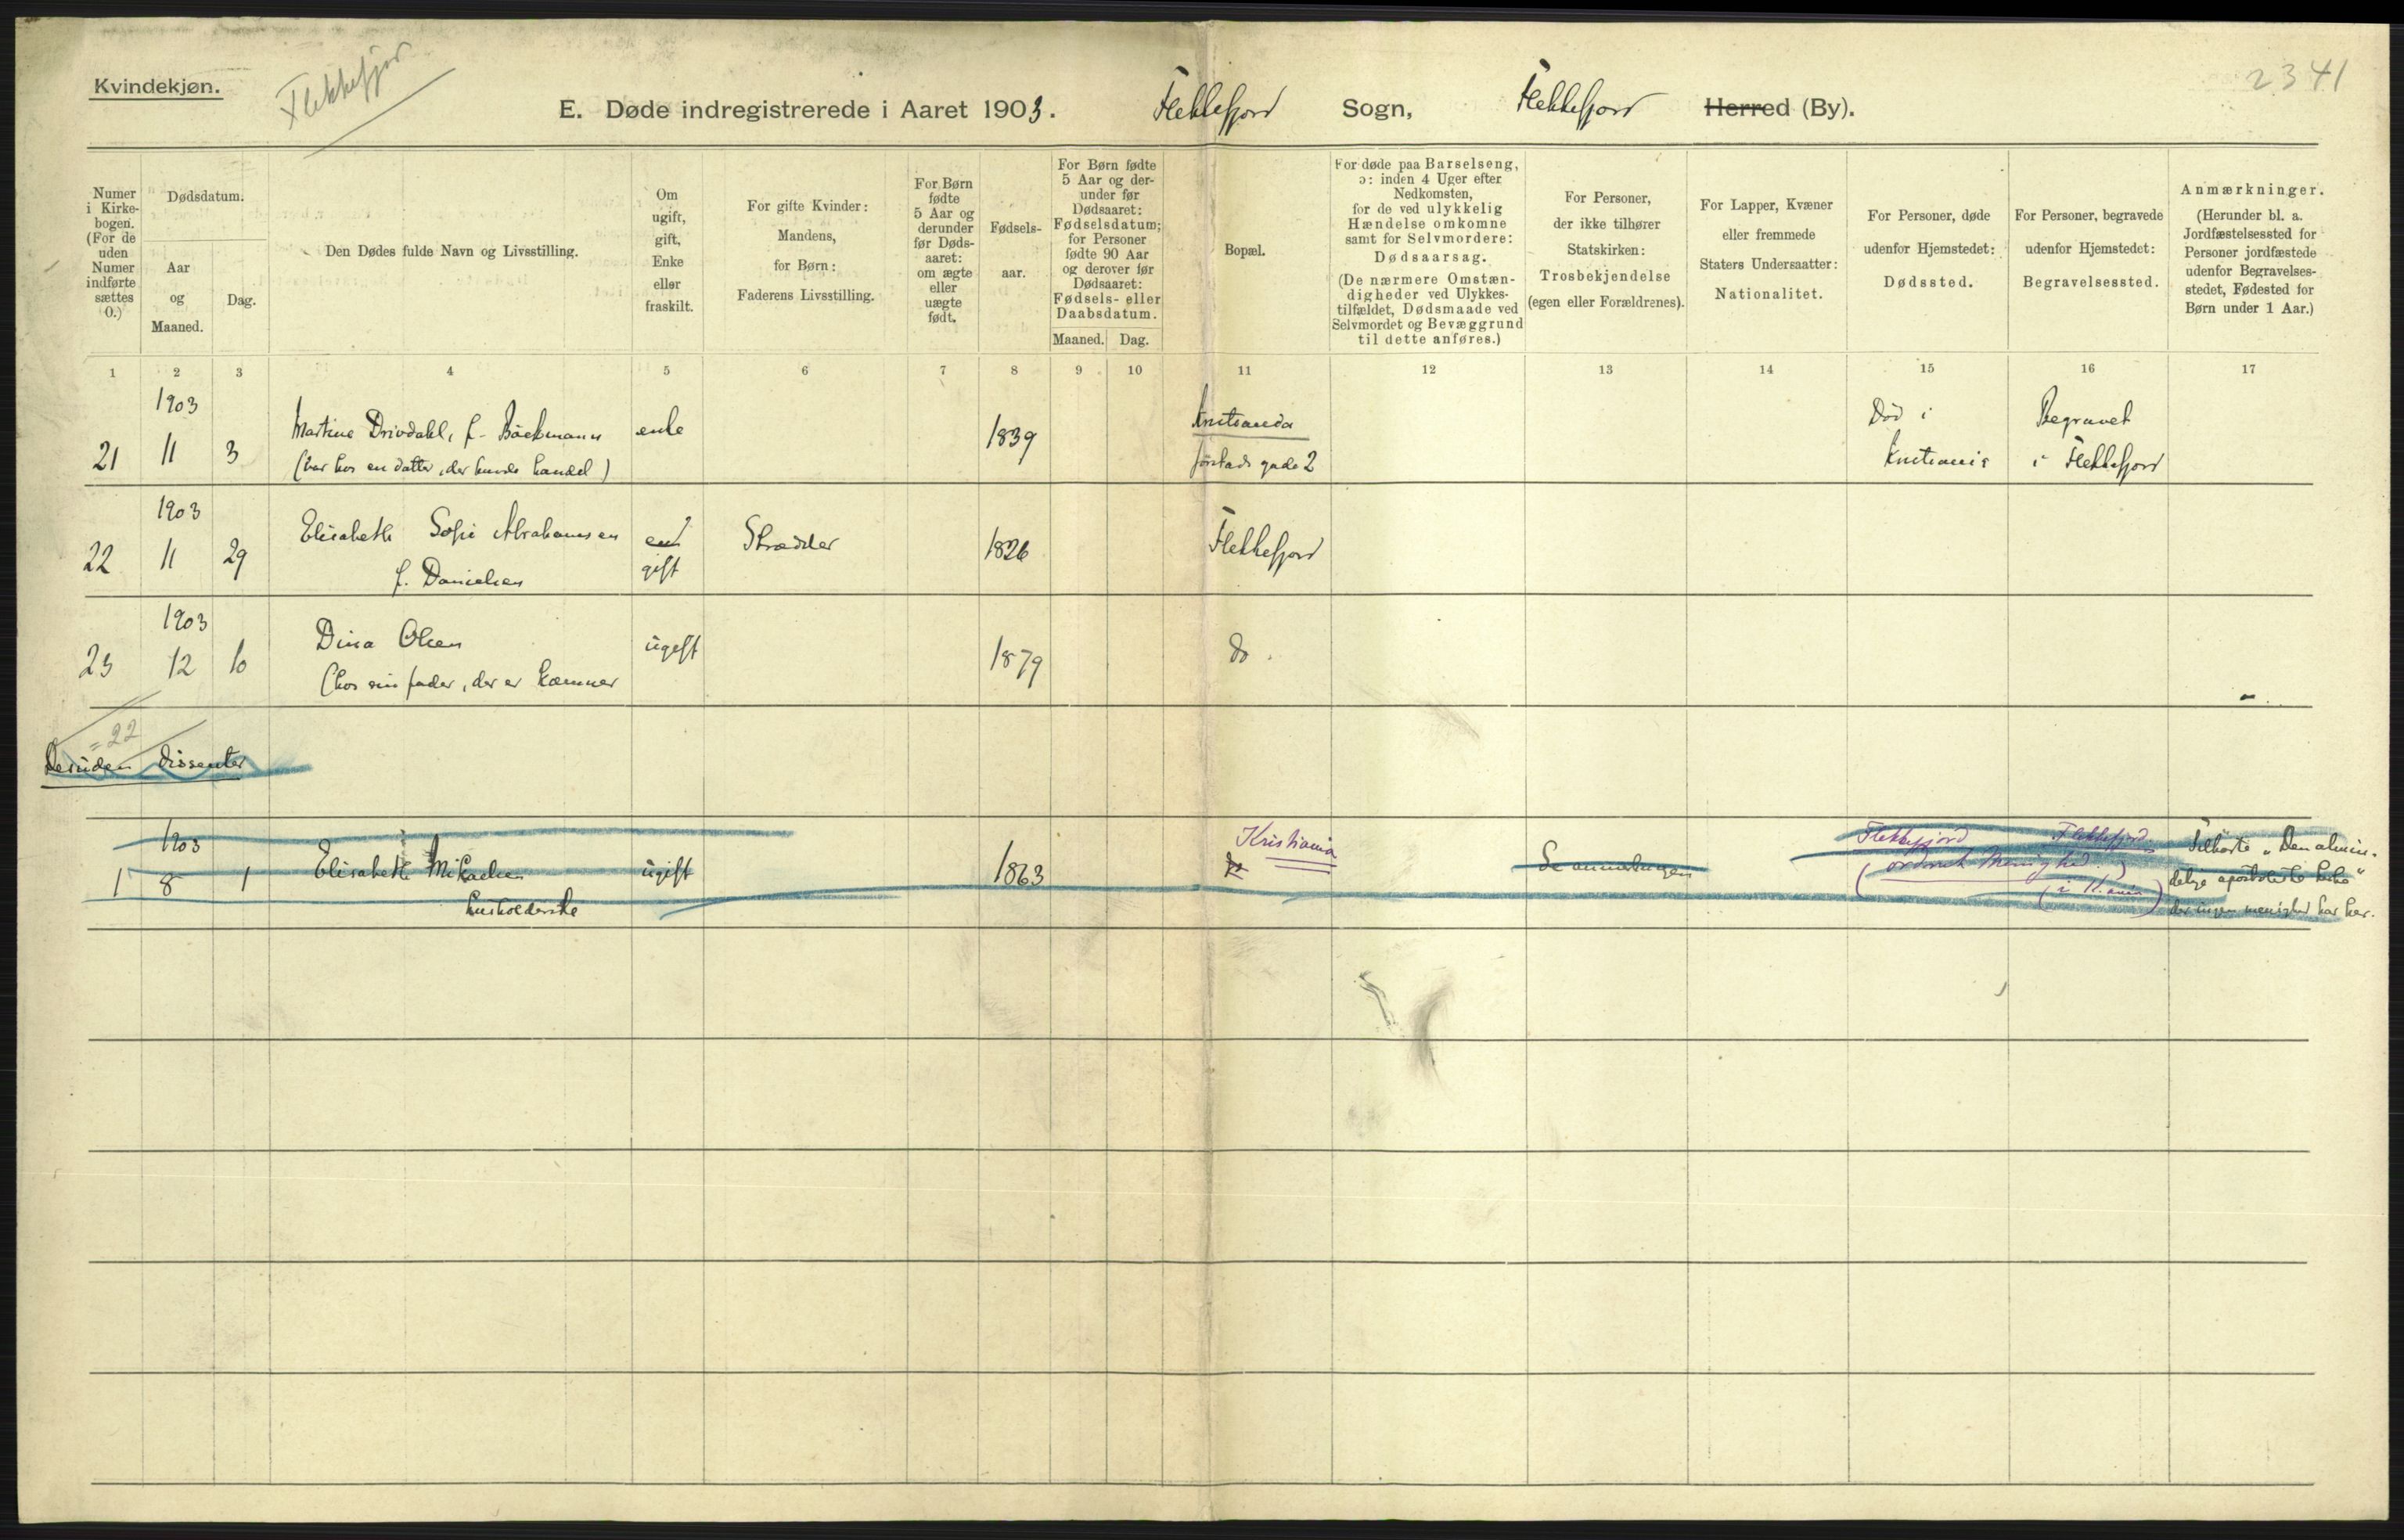 Kvindekjøn.
Flekkefjor
2341
E. Døde indregistrerede i Aaret 1903. Flekkefjord Sogn, Flekkefjord Herred (By).
Numer
i Kirke-
bogen.
(For de
uden
Numer
indførte
sættes
0.)
Dødsdatum.
Aar
og
Maaned.
Dag.
Den Dødes fulde Navn og Livsstilling.
Om
ugift,
gift,
Enke
eller
fraskilt.
For gifte Kvinder:
Mandens,
for Børn:
Faderens Livsstilling.
For Børn
fødte
5 Aar og
derunder
før Døds-
aaret:
om ægte
eller
uægte
født.
Fødsels-
aar.
For Børn fødte
5 Aar og der-
under før
Dødsaaret:
Fødselsdatum;
for Personer
fødte 90 Aar
og derover før
Dødsaaret:
Fødsels- eller
Daabsdatum.
Maaned. Dag.
Bopæl.
For døde paa Barselseng,
ɔ: inden 4 Uger efter
Nedkomsten,
for de ved ulykkelig
Hændelse omkomne
samt for Selvmordere:
Dødsaarsag.
(De nærmere Omstæn-
digheder ved Ulykkes-
tilfældet, Dødsmaade ved
Selvmordet og Bevæggrund
til dette anføres.)
For Personer,
der ikke tilhører
Statskirken:
Trosbekjendelse
(egen eller Forældrenes).
For Lapper, Kvæner
eller fremmede
Staters Undersaatter:
Nationalitet.
For Personer, døde
udenfor Hjemstedet:
Dødssted.
For Personer, begravede
udenfor Hjemstedet:
Begravelsessted.
Anmærkninger.
(Herunder bl. a.
Jordfæstelsessted for
Personer jordfæstede
udenfor Begravelses-
stedet, Fødested for
Børn under 1 Aar.)
1 2 3 4 5 6 7 8 9 10 11 12 13 14 15 16 17
1903
21 11 3 Martine Drivdahl, f. Bäckmann enke 1839 Død i Begravet
(var hos en datter, der havde handel) gade 2 Kristiania i Flekkefjord
1903
22 11 29 Elisabeth Sofie Abrahamsen gift 1826 Flekkefjord
f. Danielsen
1903
23 12 10 Dina Olsen ugift 1879 do.
(hos sin fader, der er kæmner
= 22
Desuden dissenter
1903
1 8 1 Elisabeth Mikaelsen ugift 1863 Kristiania
do
husholderske
Flekkefjord Flekkefjord
Menighed
Tilhørte "Den almin-
delige apostoliske kirke"
der ingen menighed har her.